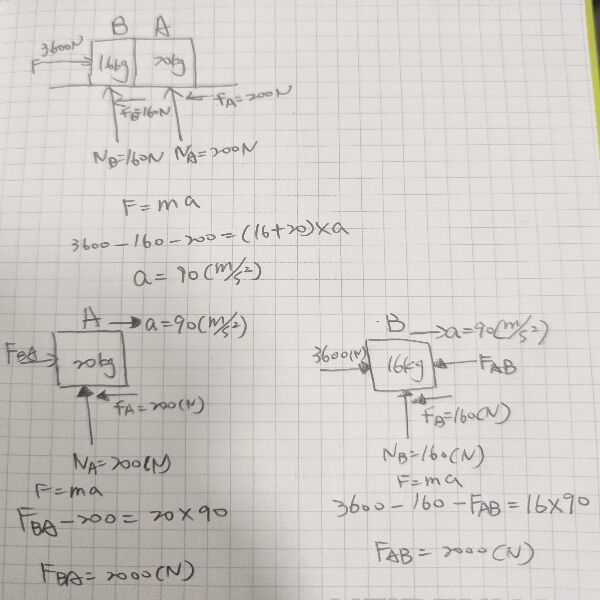 B A
3600N
F
16kg 20kg
fB=160N
fA=200N
NB=160N NA=200N
F=ma
3600-160-200=(16+20)×a
a=90(m/s²)
A
a=90(m/s²)
FBA
20kg
fA=200(N)
NA=200(N)
F=ma
FBA-200=20×90
FBA=2000(N)
B
a=90(m/s²)
3600(N)
16kg
FAB
fB=160(N)
NB=160(N)
F=ma
3600-160-FAB=16×90
FAB=2000(N)